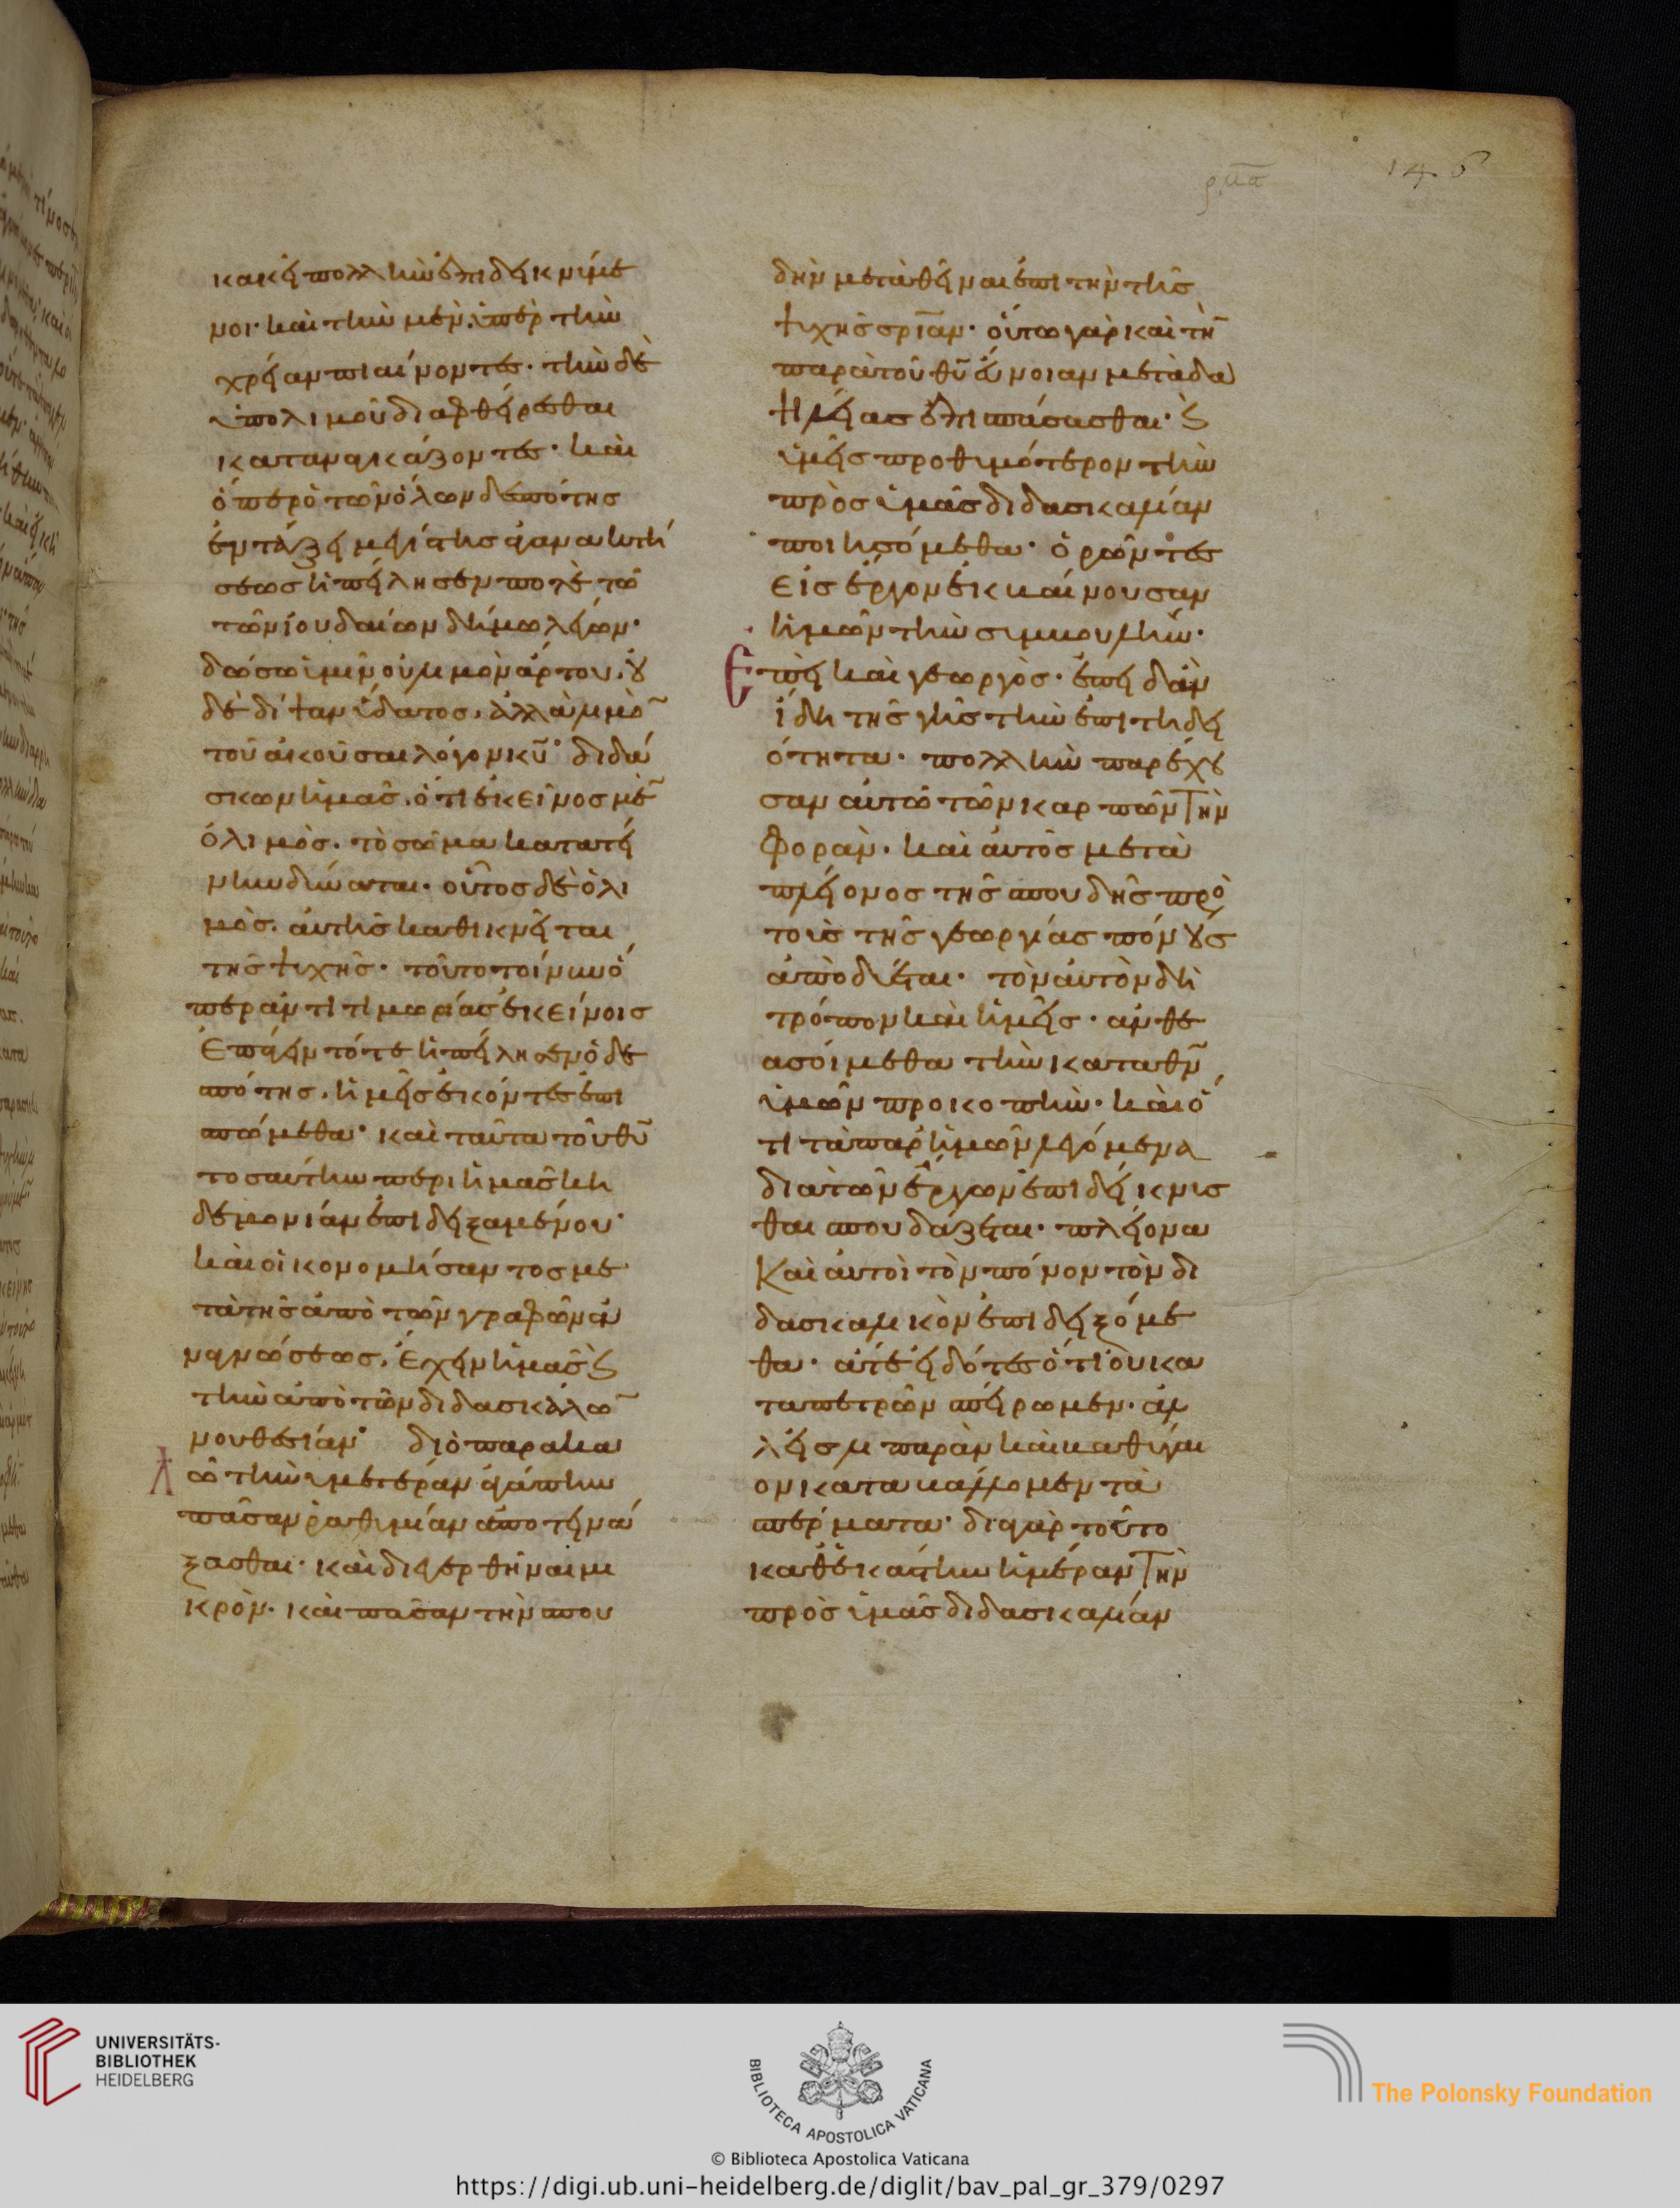 κακεῖ πολλὴν ἐπιδεικνύμε
νοι· καὶ τὴν μὲν. ὑπὲρ τὴν
χρείαν πιαίνοντες· τὴν δὲ
ὑπο λιμοῦ διαφθείρεσθαι
καταναγκάζοντες· καὶ
ὅπερ ὁ τῶν ὅλων δεσπότης
ἐν τάξει μεγίστης ἀγανακτή
σεως ἠπείλησεν ποτὲ τῶ
τῶν ἰουδαίων δήμω λέγων·
δώσω ὑμῖν οὐ λιμὸν ἄρτου. οὐ
δὲ δίψαν ὕδατος. ἀλλὰ λιμὸ̄
τοῦ ἀκοῦσαι λόγον κ̅υ̅· διδά
σκων ἡμᾶς. ὅτι ἐκεῖνος μὲ̄
ὁ λιμὸς. τὸ σῶμα κατατεί
νειν δύναται· οὗτος δὲ ὁ λι
μὸς. αὐτῆς καθικνεῖται
τῆς ψυχῆς· τοῦτο τοίνυν ὅ
περ ἀντὶ τιμωρίας ἐκείνοις
ἐπάγειν τότε ἠπείλησεν ὁ δε
σπότης. ἡμεῖς ἑκόντες ἐπι
σπώμεθα· καὶ ταῦτα τοῦ θ̅υ̅
τοσαύτην περι ἡμᾶς κη
δεμονίαν ἐπιδειξαμένου·
καὶ οἰκονομήσαντος με
τὰ τῆς ἀπὸ τῶν γραφῶν ἀ
ναγνώσεως. ἔχειν ἡμᾶς ϗ
τὴν ἀπὸ τῶν διδασκάλω̄
νουθεσίαν· διὸ παρακα
λῶ τὴν ὑμετέραν ἀγάπην
πᾶσαν ῥαθυμίαν ἀποτινά
ξασθαι· καὶ διεγερθῆναι μι
κρὸν. καὶ πᾶσαν τὴν σπου
ρμα
146
δὴν μεταθεῖναι ἐπι τὴν τῆς
ψυχῆς σρίαν· οὕτω γὰρ καὶ τὴ̄
παρὰ τοῦ θ̅υ̅ εὔνοιαν μετὰ δα
ψιλείας ἐπισπάσασθαι· ϗ
ἡμεῖς προθυμότερον τὴν
πρὸς ὑμᾶς διδασκαλίαν
ποιησόμεθα· ὁρῶντες
εἰς ἔργον ἐκβαίνουσαν
ἡμῶν τὴν συμβουλὴν·
Ἐπεὶ καὶ γεωργὸς· ἐπειδὰν
ἴδη τῆς γῆς τὴν ἐπιτηδει
ότητα· πολλὴν παρέχου
σαν αὐτῶ τῶν καρπῶν τὴν
φορὰν· καὶ αὐτὸς μετὰ
πλείονος τῆς σπουδῆς πρὸ
τοὺς τῆς γεωργίας πόνους
ἀποδύεται· τὸν αὐτὸν δὴ
τρόπον καὶ ἡμεῖς· ἂν θε
ασοίμεθα τὴν κατα θ̅ν̅
ὑμῶν προκοπὴν· καὶ ὅ
τι τὰ παρ' ἡμῶν λεγόμενα
διὰ τῶν ἔργων ἐπιδείκνυσ
θαι σπουδάζεται· πλείονα
Καὶ αὐτοὶ τὸν πόνον τὸν δι
δασκαλικὸν ἐπιδειξόμε
θα· ἅτε εἰδότες ὅτι οὐ κα
τα πετρῶν σπείρωμεν· ἀλ
λ' εἰς λιπαρὰν καὶ βαθύγαι
ον καταβάλλομεν τὰ
σπέρματα· δια γὰρ τοῦτο
καθ' ἑκάστην ἡμέραν τὴν
πρὸς ὑμᾶς διδασκαλίαν
UNIVERSITÄTS-
BIBLIOTHEK
HEIDELBERG
BIBLIOTECA APOSTOLICA VATICANA
The Polonsky Foundation
© Biblioteca Apostolica Vaticana
https://digi.ub.uni-heidelberg.de/diglit/bav_pal_gr_379/0297